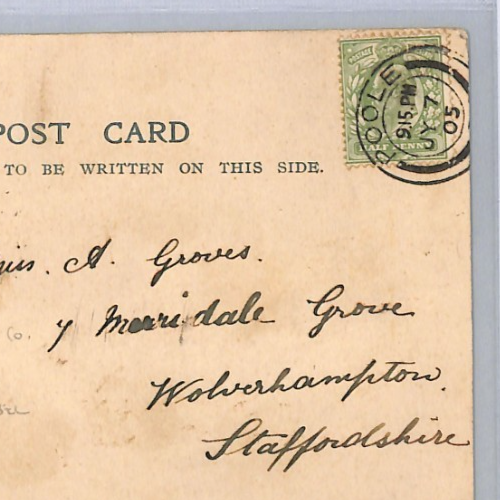 POST CARD
TO BE WRITTEN ON THIS SIDE.
POOLE
9.15.PM
JY 7
05
HALF PENNY
A. Groves.
Co. 7 Merridale Grove
Wolverhampton.
Staffordshire